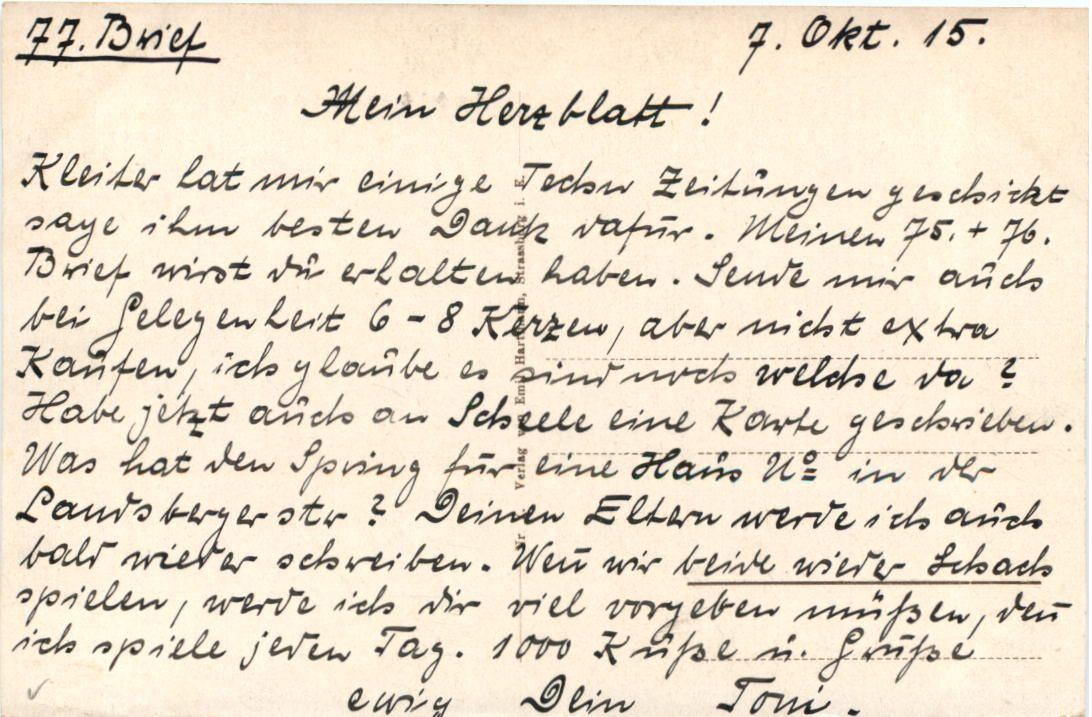 77. Brief
7. Okt. 15.
Mein Herzblatt!
Kleiter hat mir einige Techn Zeitungen geschickt
sage ihm besten Dank dafür. Meinen 75. + 76.
Brief wirst dü erhalten haben. Sende mir auch
bei Gelegenheit 6 - 8 Kerzen, aber nicht extra
Kaufen, ich glaube es sind noch welche da?
Habe jetzt auch an Scheele eine Karte geschrieben.
Was hat den Spring für eine Haus No in der
Landsbergerstr? Deinen Eltern werde ich auch
bald wieder schreiben. Wen̄ wir beide wieder Schach
spielen, werde ich dir viel vorgeben müßen, den̄
ich spiele jeden Tag. 1000 Küße u. Grüße
ewig Dein Toni.
Verlag von Emil Hartmann, Strassburg i. E.